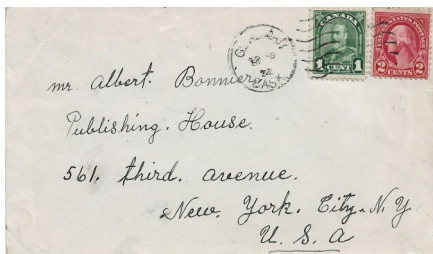 CANADA
1 CENT 1
UNITED STATES POSTAGE
2 CENTS 2
SASK
mr. Albert. Bonnier
Publishing. House.
561. third. avenue.
New. York. City. N. Y.
U. S. A